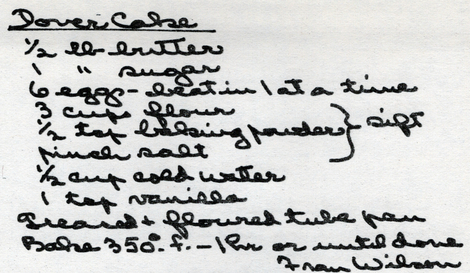 Dover Cake
1/2 lb butter
1 " sugar
6 eggs - beat in 1 at a time
3 cups flour
1/2 tsp baking powder } sift
pinch salt
1/2 cup cold water
1 tsp vanilla
Greased + floured tube pan
Bake 350°. f. - 1 hr or until done
Fran Wilson